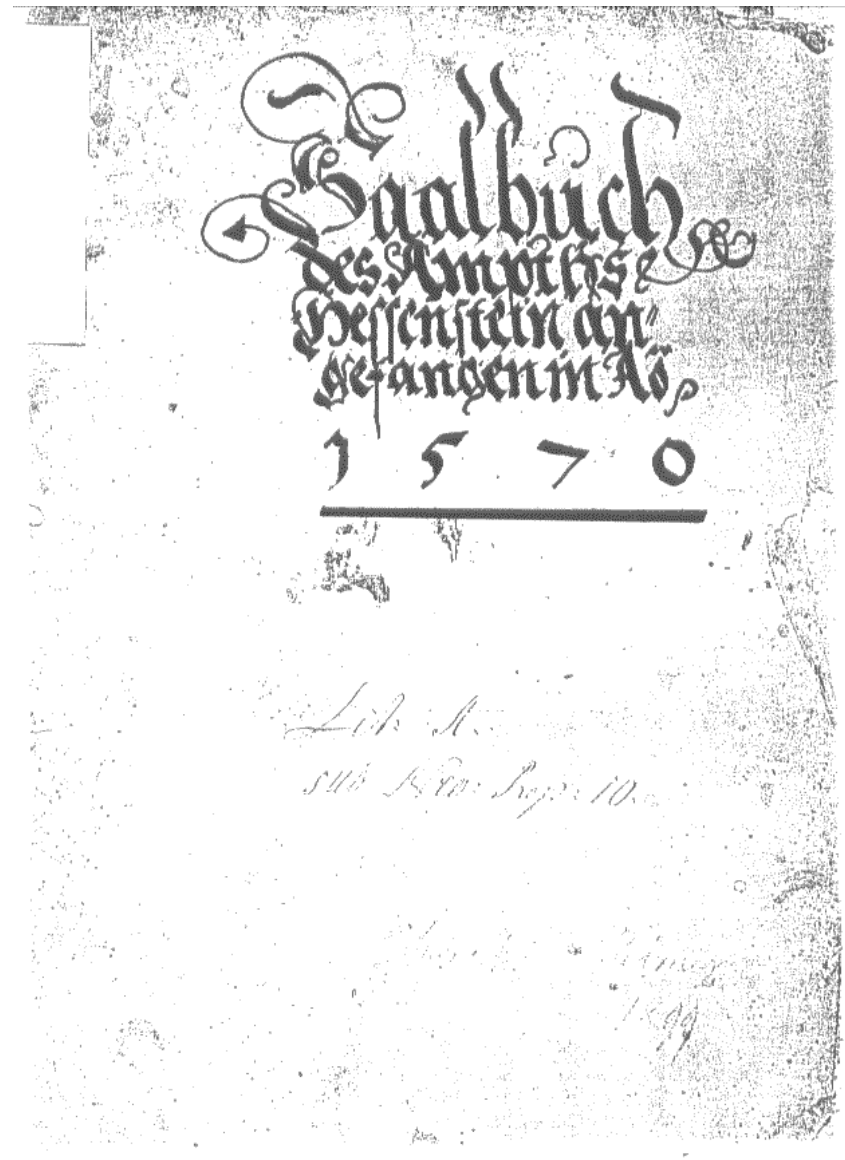 Saalbuch
des Ampths
Hessenstein an⸗
gefangen in Aõ
1570
Lit. A.
sub Nro. Repr. 10.